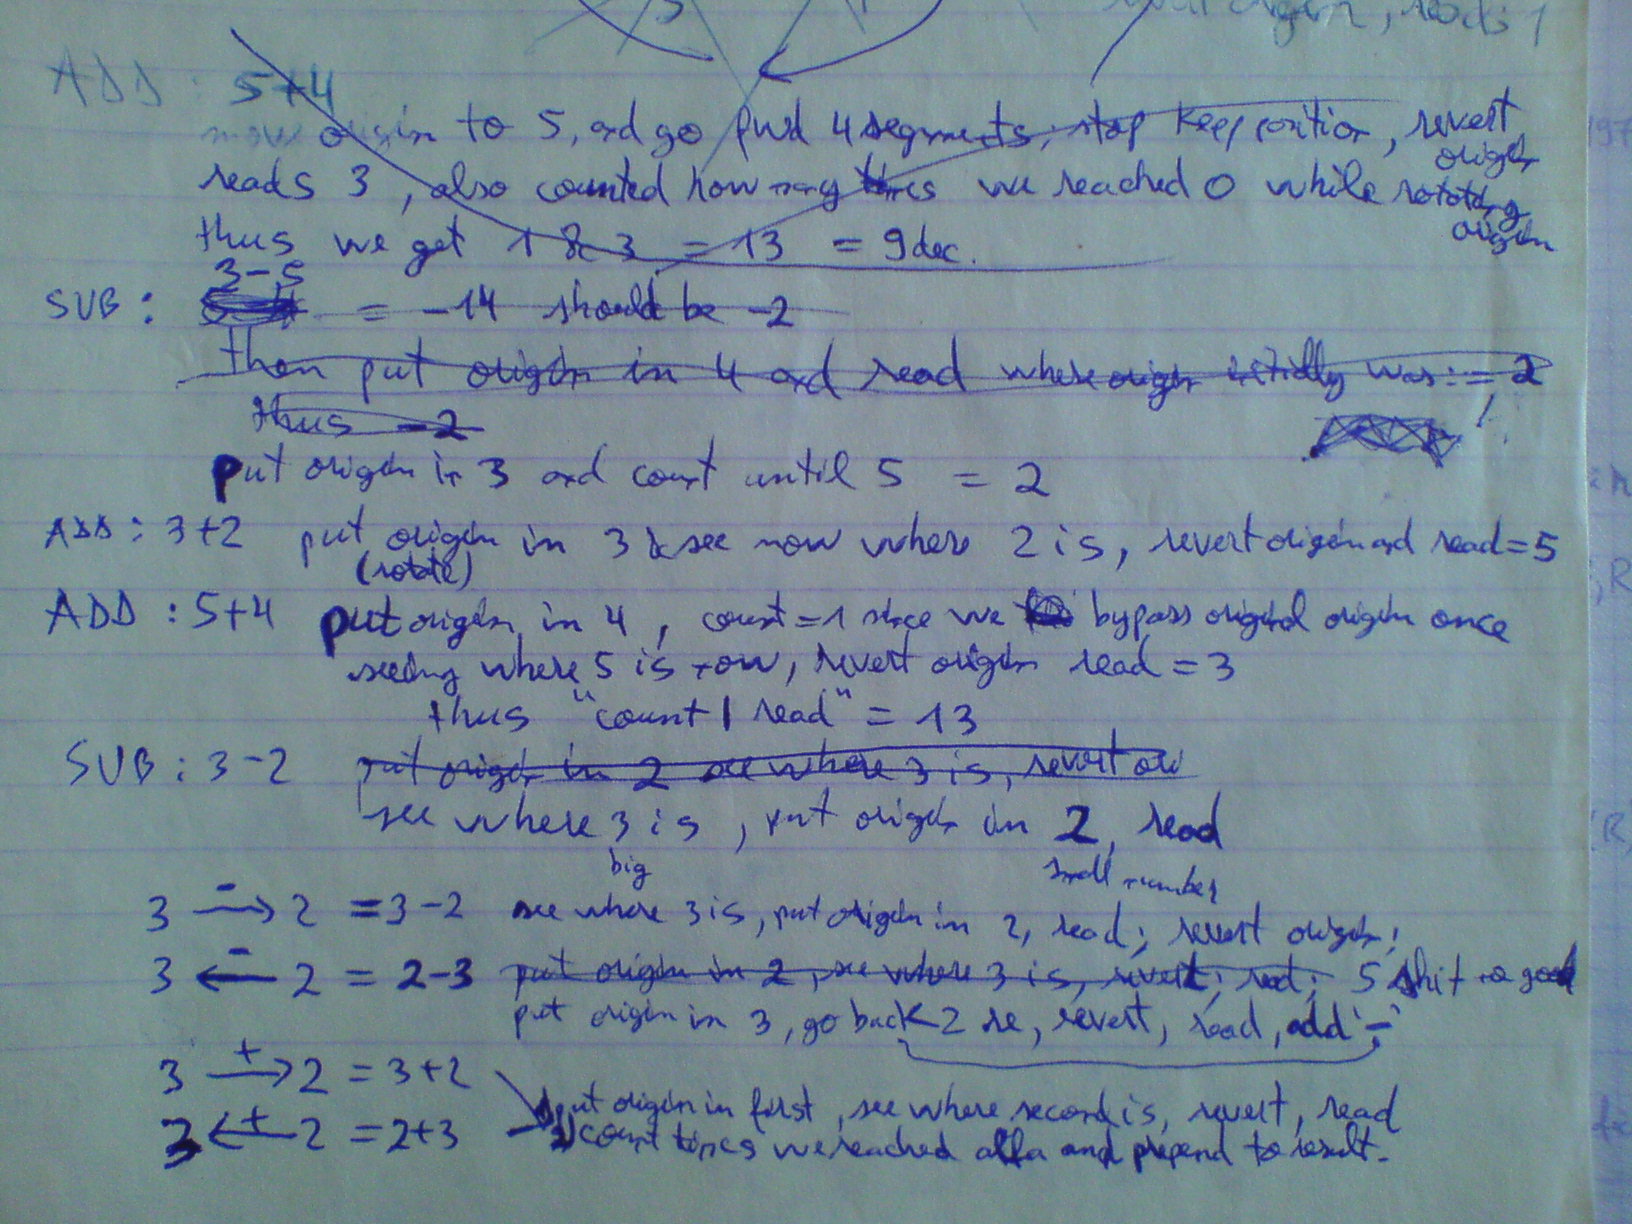 origin, reads 1
ADD : 5+4
move origin to 5, and go fwd 4 segments, stop keep position, revert origin
reads 3, also counted how many times we reached 0 while rotating origin
thus we get 1 & 3 = 13 = 9dec.
3-5
SUB : = -14 should be -2
then put origin in 4 and read where origin initially was := 2
thus -2
put origin in 3 and count until 5 = 2
ADD : 3+2 put origin in 3 & see now where 2 is, revert origin and read = 5
(rotate)
ADD : 5+4 put origin in 4, count = 1 since we bypass original origin once
seeing where 5 is now, revert origin read = 3
thus "count | read" = 13
SUB : 3-2 put origin in 2 see where 3 is, revert
see where 3 is, put origin in 2, read
big small number
3 -→ 2 = 3-2 see where 3 is, put origin in 2, read; revert origin;
3 ←- 2 = 2-3 put origin in 2, see where 3 is, revert; read; 5 shit no good
put origin in 3, go back 2 , revert, read, add '-'
3 +→ 2 = 3+2
put origin in first, see where second is, revert, read
3 ←+ 2 = 2+3 count times we reached alfa and prepend to result.